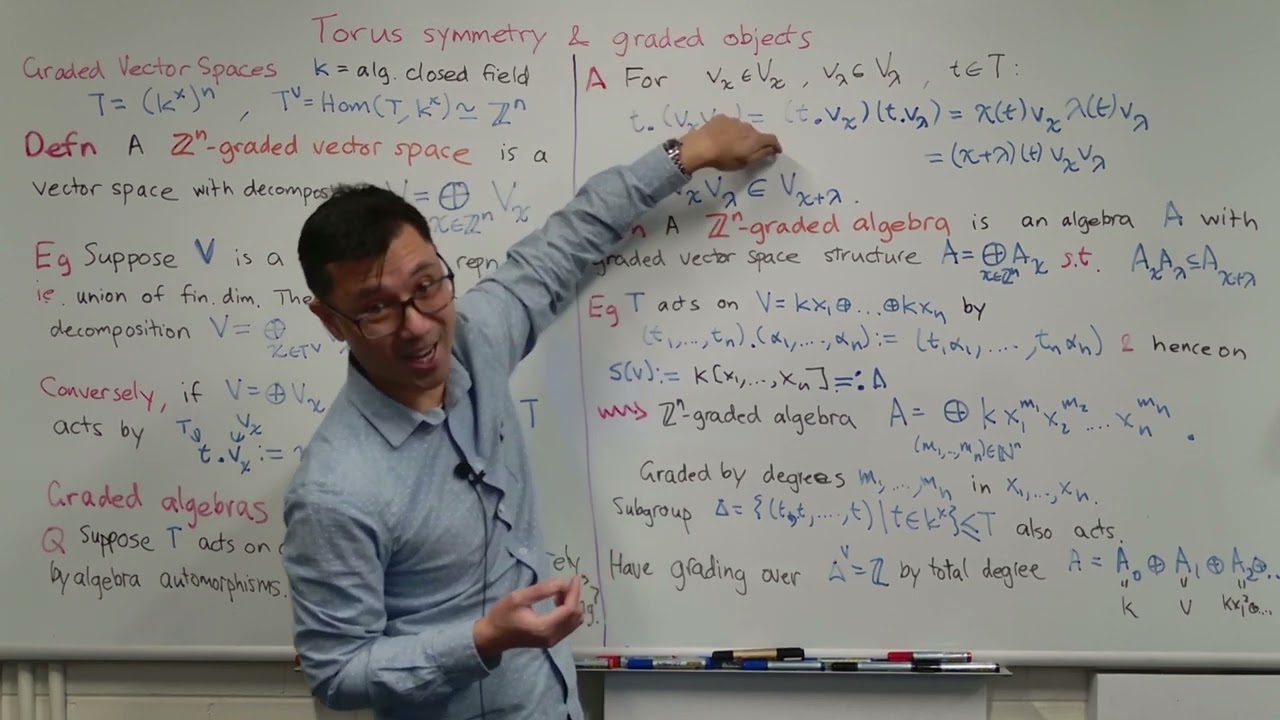 Torus symmetry & graded objects
Graded Vector Spaces k = alg. closed field
T = (k^×)^n , T^∨ = Hom(T, k^×) ≃ ℤ^n
Defn A ℤ^n-graded vector space is a
vector space with = ⊕_{χ∈ℤ^n} V_χ
Eg Suppose V is a repn
ie. union of fin. dim.
decomposition V = ⊕_{χ∈T^∨}
Conversely, if V = ⊕V_χ T
acts by T∋ V_χ
t.v_χ :=
Graded algebras
Q Suppose T acts on
by algebra automorphisms.
A For v_χ ∈ V_χ , v_λ ∈ V_λ , t ∈ T :
t.(v_χ = (t.v_χ)(t.v_λ) = χ(t)v_χ λ(t)v_λ
= (χ+λ)(t) v_χ v_λ
v_λ ∈ V_{χ+λ} .
A ℤ^n-graded algebra is an algebra A with
graded vector space structure A = ⊕_{χ∈ℤ^n} A_χ s.t. A_χ A_λ ⊆ A_{χ+λ}
Eg T acts on V = kx_1 ⊕ ... ⊕ kx_n by
(t_1,...,t_n).(α_1,...,α_n) := (t_1α_1, ...., t_nα_n) & hence on
S(V) := k[x_1,...,x_n] =: A
⇝ ℤ^n-graded algebra A = ⊕_{(m_1,..,m_n)∈ℕ^n} k x_1^{m_1} x_2^{m_2} .... x_n^{m_n} .
Graded by degrees m_1,...,m_n in x_1,...,x_n.
Subgroup Δ = {(t,t,...,t) | t∈k^×} ≤ T also acts.
Have grading over Δ^∨ = ℤ by total degree A = A_0 ⊕ A_1 ⊕ A_2 ⊕..
k V kx_1^2⊕...